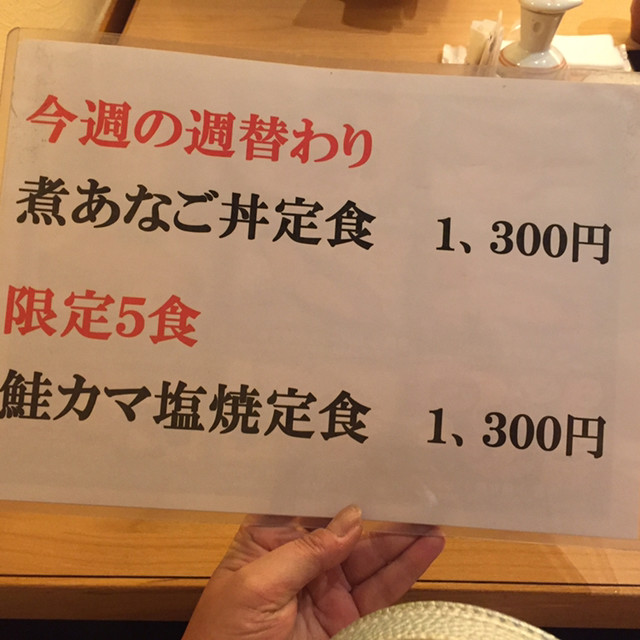 今週の週替わり
煮あなご丼定食 1、300円
限定5食
鮭カマ塩焼定食 1、300円